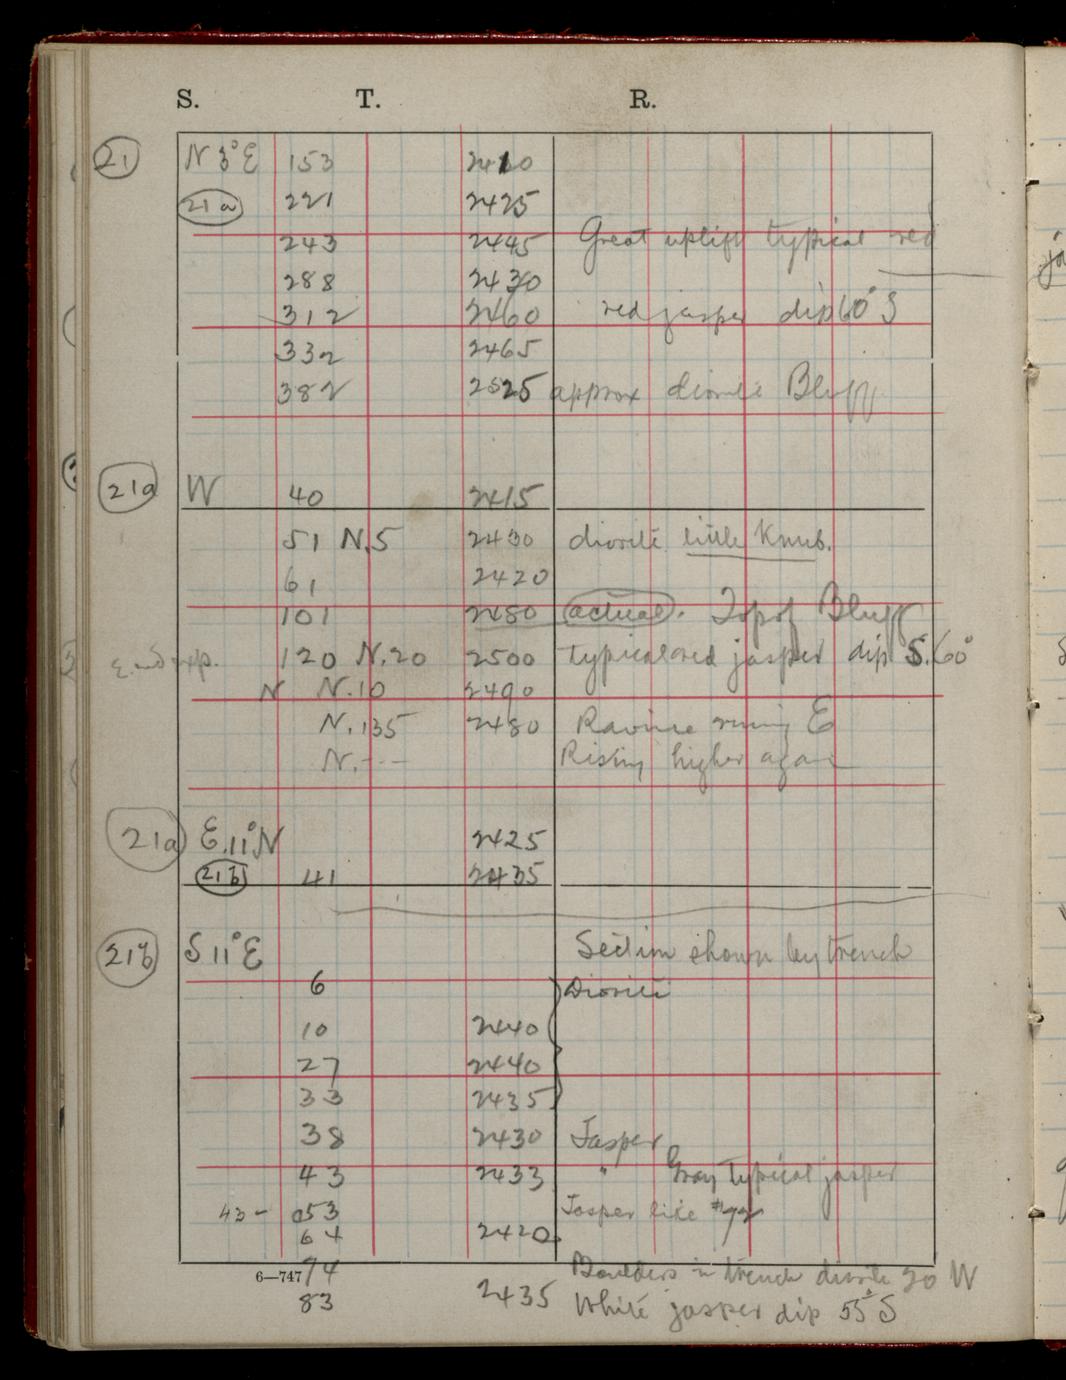 S. T. R.
21 N 3° E 153 2410
21a 221 2425
243 2445 Great uplift typical red
288 2430
312 2460 red jasper dip 60° S
332 2465
382 2525 approx diorite Bluff
21a W 40 2415
51 N.5 2430 diorite little Knub.
61 2420
101 2480 actual. Top of Bluff
120 N.20 2500 typical red jasper dip S. 60°
N N.10 2490
N. 135 2480 Ravine runing E
N. --- Rising higher again
21a E. 11° N 2425
21b 41 2435
21b S 11° E Section shown by trench
6 Diorite
10 2440
27 2440
33 2435
38 2430 Jasper
43 2433 " Gray typical jasper
43 - 53 Jasper like #72
64 2420
6—747 74 Boulders in trench diorite 20 W
83 2435 White jasper dip 55° S